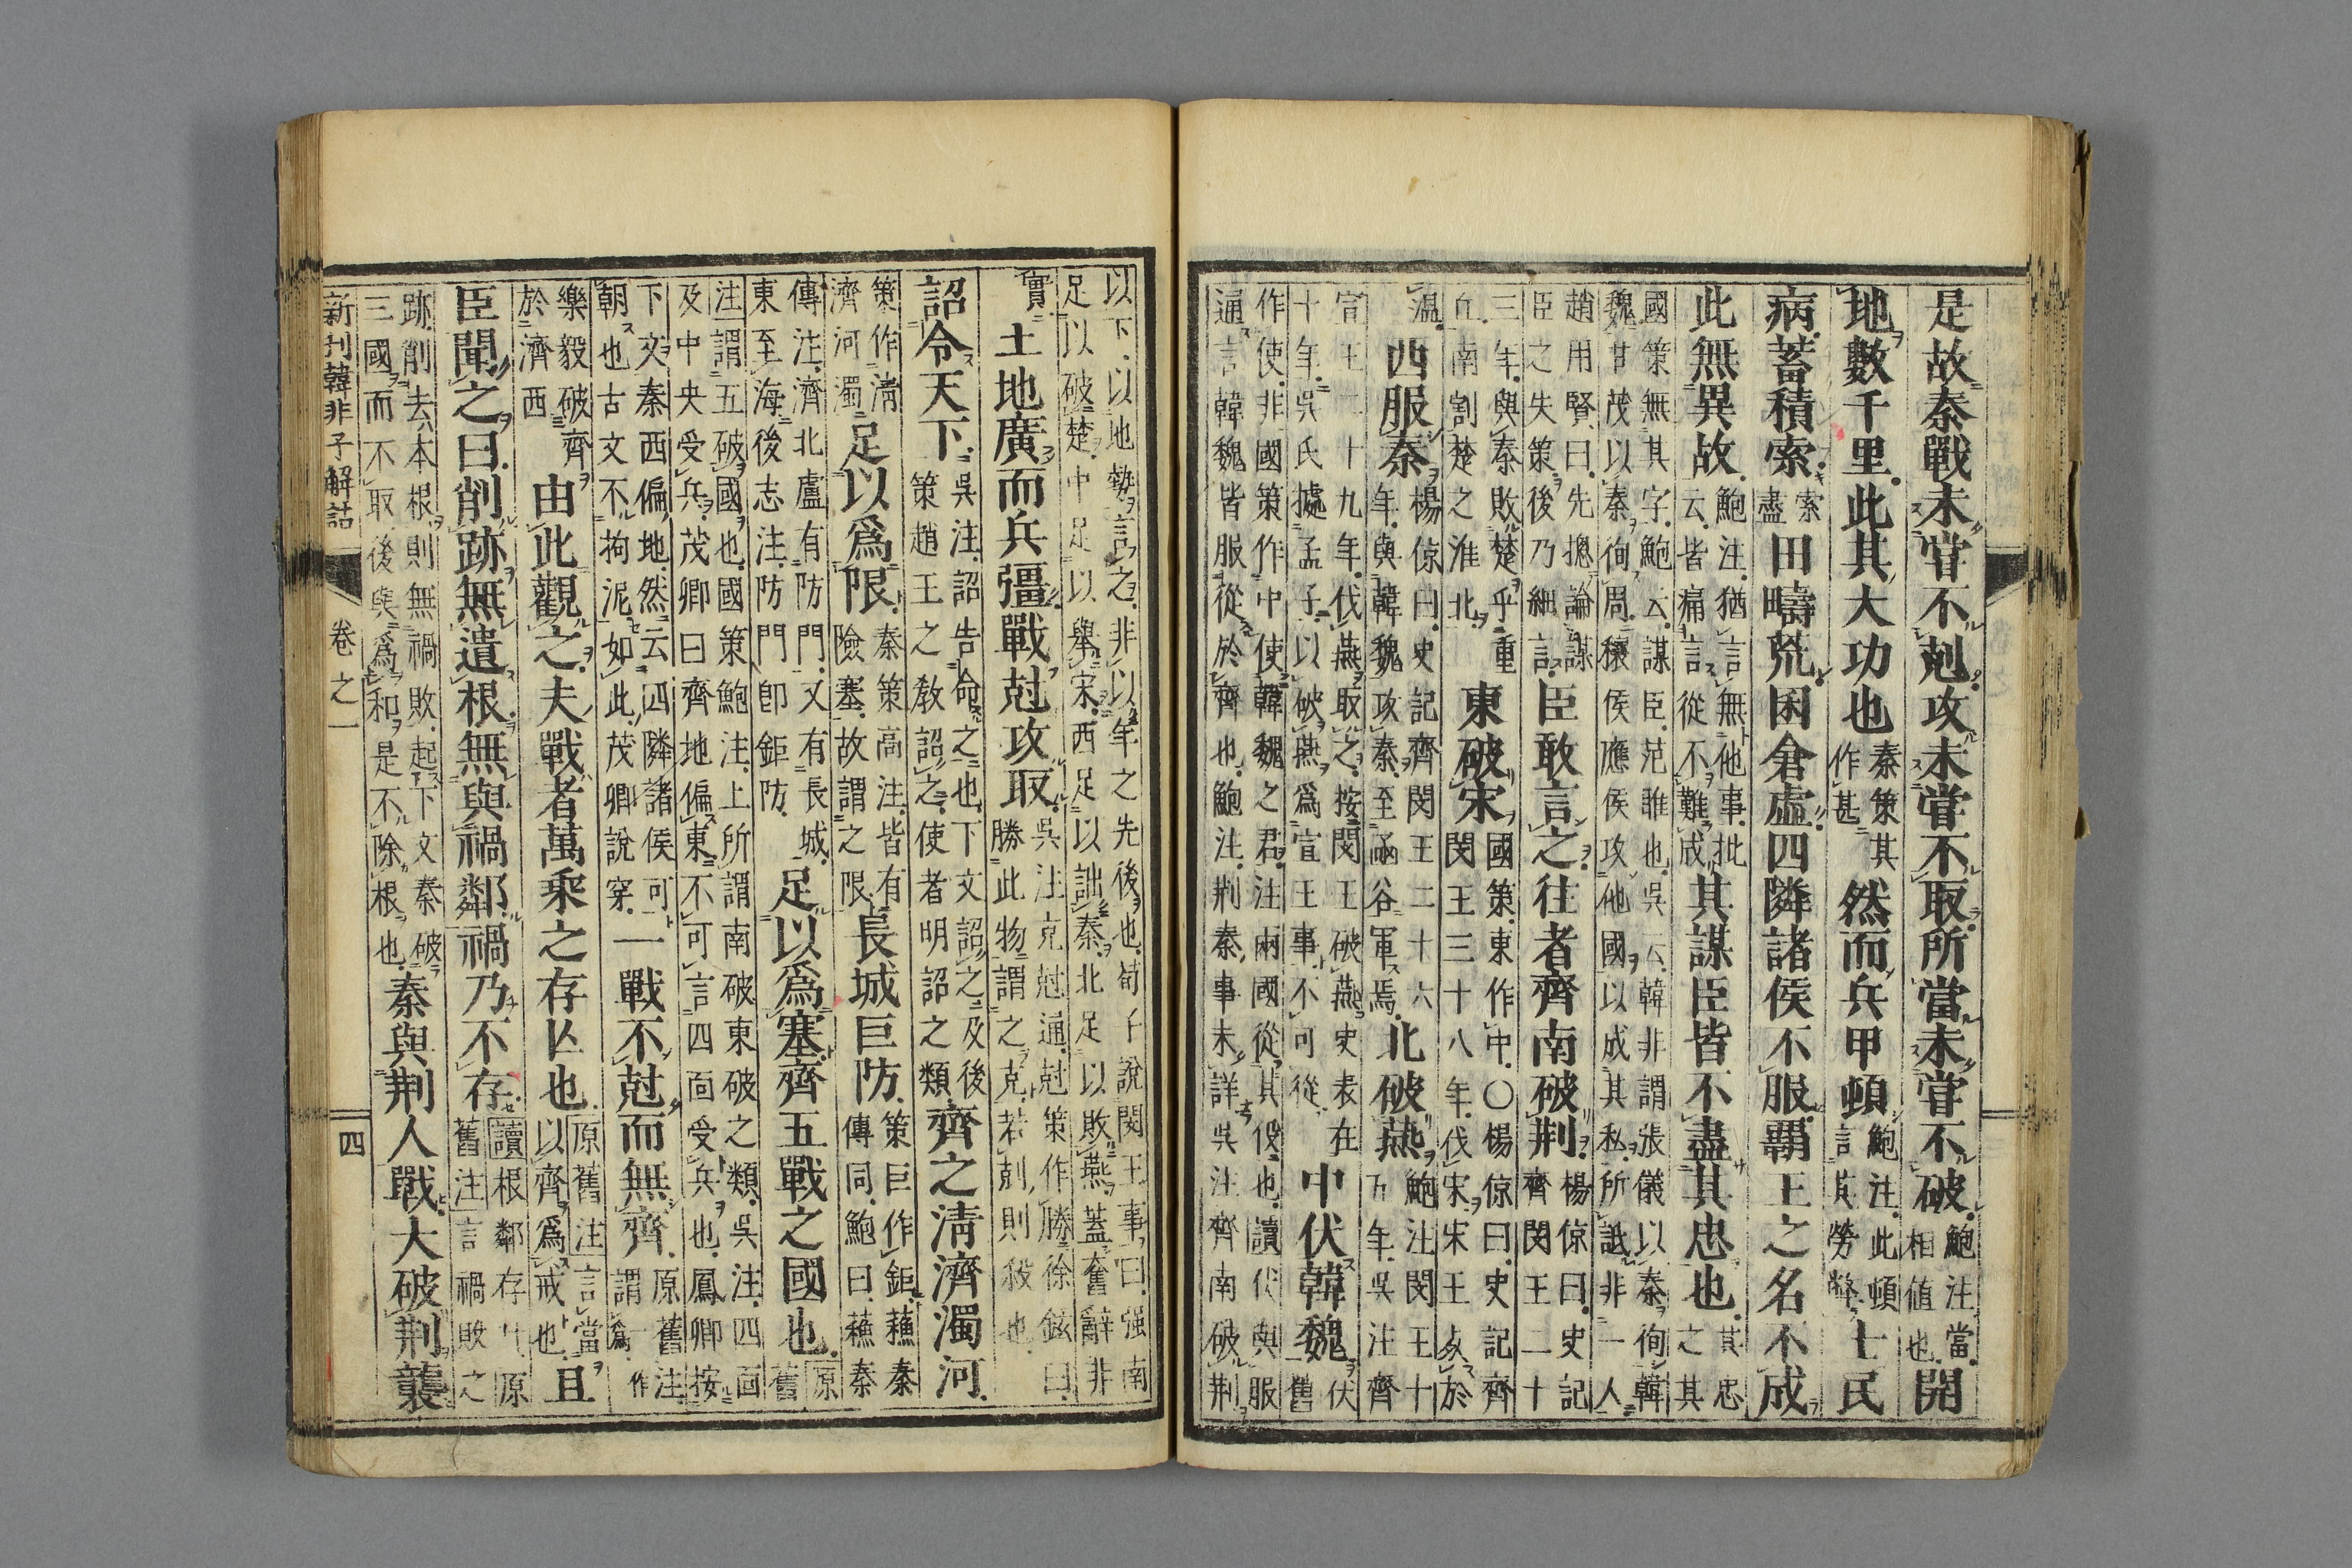 是故秦戰未甞不剋攻未甞不取所當未甞不破鮑注當相値也開
地數千里此其大功也秦策其作甚然而兵甲頓鮑注此頓言其勞弊士民
病蓄積索索盡田疇荒囷倉虛四隣諸侯不服霸王之名不成
此無異故鮑注猶言無他事批云皆痛言從不難成其謀臣皆不盡其忠也其忠之其
國策無其字鮑云謀臣范雎也吳云韓非謂張儀以秦徇韓
魏甘茂以秦徇周穰侯應侯攻他國以成其私所詆非一人
趙用賢曰先摠論謀臣之失策後乃細言臣敢言之往者齊南破荆楊倞曰史記齊閔王二十
三年與秦敗楚乎重丘南割楚之淮北東破宋國策東作中〇楊倞曰史記齊閔王三十八年伐宋宋王死於
溫西服秦楊倞曰史記齊閔王二十六年與韓魏攻秦至函谷軍焉北破燕鮑注閔王十五年吳注齊
宣王二十九年伐燕取之按閔王破燕史表在十年吳氏據孟子以破燕爲宣王事不可從中伏韓魏伏舊
作使非國策作中使韓魏之君注兩國從其伇也讀伏與服
通言韓魏皆服從於齊也鮑注荆秦事未詳吳注齊南破荆
以下以地勢言之非以年之先後也荀子說閔王事曰强南
足以破楚中足以舉宋西足以詘秦北足以敗燕蓋奮辭非
實土地廣而兵彊戰尅攻取吳注克尅通尅策作勝徐鉉曰勝此物謂之克若剋則殺也
詔令天下吳注詔告命之也下文詔之及後策趙王之敎詔之使者明詔之類齊之淸濟濁河
策作淸濟河濁足以爲限秦策高注皆有險塞故謂之限長城巨防策巨作鉅蘓秦傳同鮑曰蘓秦
傳注濟北盧有防門又有長城東至海後志注防門卽鉅防足以爲塞齊五戰之國也原舊
注謂五破國也國策鮑注上所謂南破東破之類吳注四靣
及中央受兵茂卿曰齊地偏東不可言四靣受兵也鳳卿按
下文秦西偏地然云四隣諸侯可朝也古文不拘泥如此茂卿說穿一戰不尅而無齊原舊注謂爲一作
樂毅破齊於濟西由此觀之夫戰者萬乘之存亾也原舊注言當以齊爲戒也且
臣聞之曰削跡無遺根無與禍鄰禍乃不存讀根鄰存叶原舊注言禍敗之
跡削去本根則無禍敗起下文秦破三國而不取後與爲和是不除根也秦與荆人戰大破荆襲
新刊韓非子解詁 卷之一 四